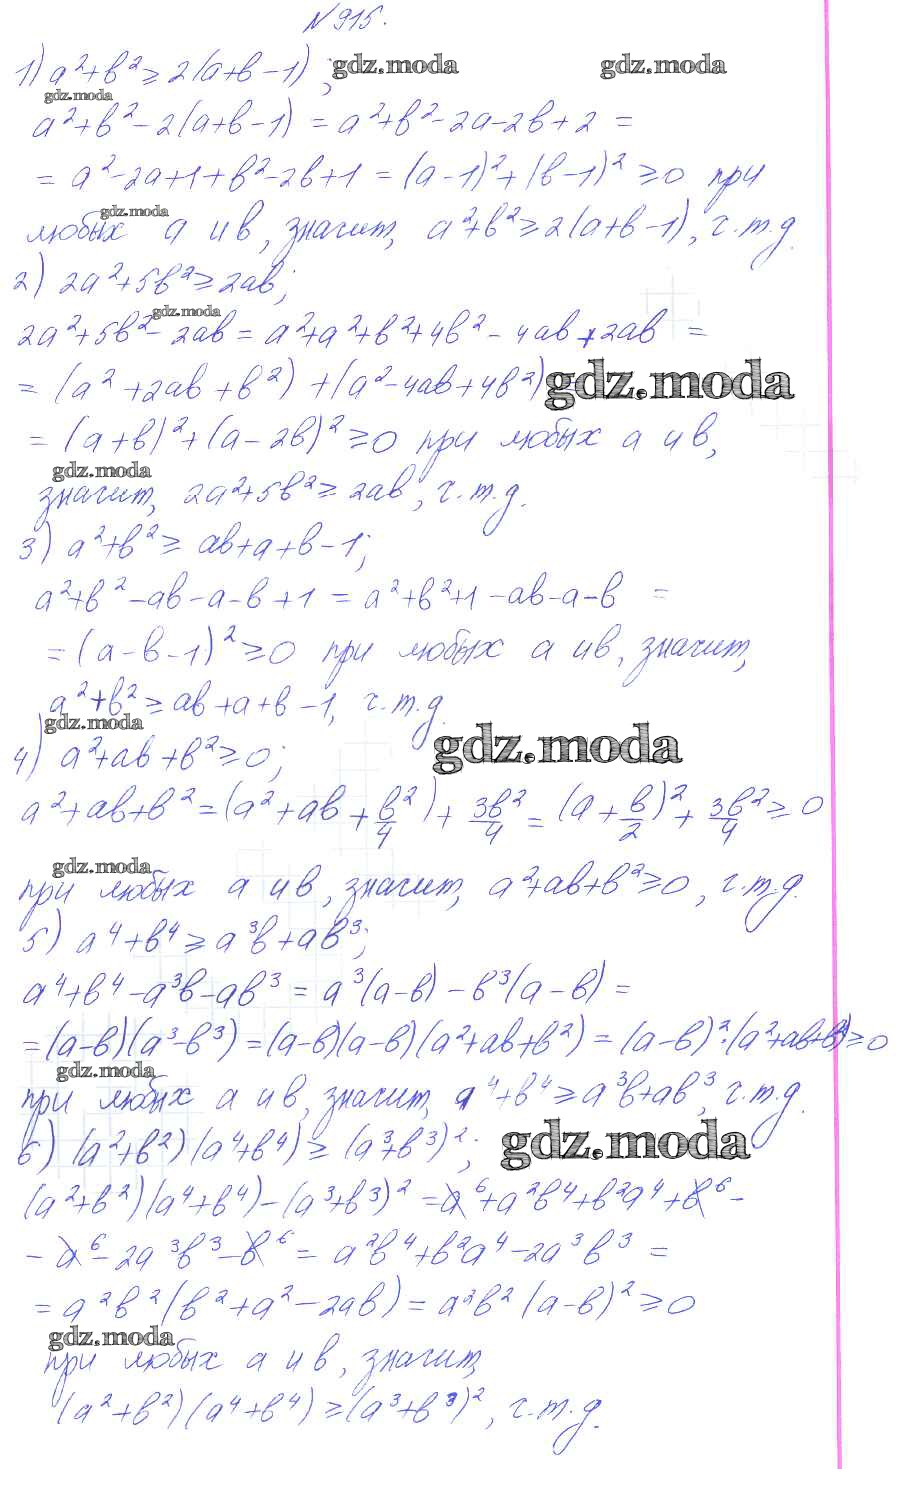 № 915.
1) a²+b² ≥ 2(a+b-1);
gdz.moda
gdz.moda
gdz.moda
a²+b²-2(a+b-1) = a²+b²-2a-2b+2 =
= a²-2a+1+b²-2b+1 = (a-1)²+(b-1)² ≥ 0 при
gdz.moda
любых a и b, значит, a²+b² ≥ 2(a+b-1), ч.т.д.
2) 2a²+5b² ≥ 2ab;
gdz.moda
2a²+5b²-2ab = a²+a²+b²+4b²-4ab+2ab =
= (a²+2ab+b²)+(a²-4ab+4b²)
gdz.moda
= (a+b)²+(a-2b)² ≥ 0 при любых a и b,
gdz.moda
значит, 2a²+5b² ≥ 2ab, ч.т.д.
3) a²+b² ≥ ab+a+b-1;
a²+b²-ab-a-b+1 = a²+b²+1-ab-a-b =
= (a-b-1)² ≥ 0 при любых a и b, значит,
a²+b² ≥ ab+a+b-1, ч.т.д.
gdz.moda
4) a²+ab+b² ≥ 0;
gdz.moda
a²+ab+b² = (a²+ab+b²/4)+3b²/4 = (a+b/2)²+3b²/4 ≥ 0
gdz.moda
при любых a и b, значит, a²+ab+b² ≥ 0, ч.т.д.
5) a⁴+b⁴ ≥ a³b+ab³;
a⁴+b⁴-a³b-ab³ = a³(a-b)-b³(a-b) =
= (a-b)(a³-b³) = (a-b)(a-b)(a²+ab+b²) = (a-b)²·(a²+ab+b²) ≥ 0
gdz.moda
при любых a и b, значит, a⁴+b⁴ ≥ a³b+ab³, ч.т.д.
6) (a²+b²)(a⁴+b⁴) ≥ (a³+b³)²;
gdz.moda
(a²+b²)(a⁴+b⁴)-(a³+b³)² = a⁶+a²b⁴+b²a⁴+b⁶-
-a⁶-2a³b³-b⁶ = a²b⁴+b²a⁴-2a³b³ =
= a²b²(b²+a²-2ab) = a²b²(a-b)² ≥ 0
gdz.moda
при любых a и b, значит,
(a²+b²)(a⁴+b⁴) ≥ (a³+b³)², ч.т.д.